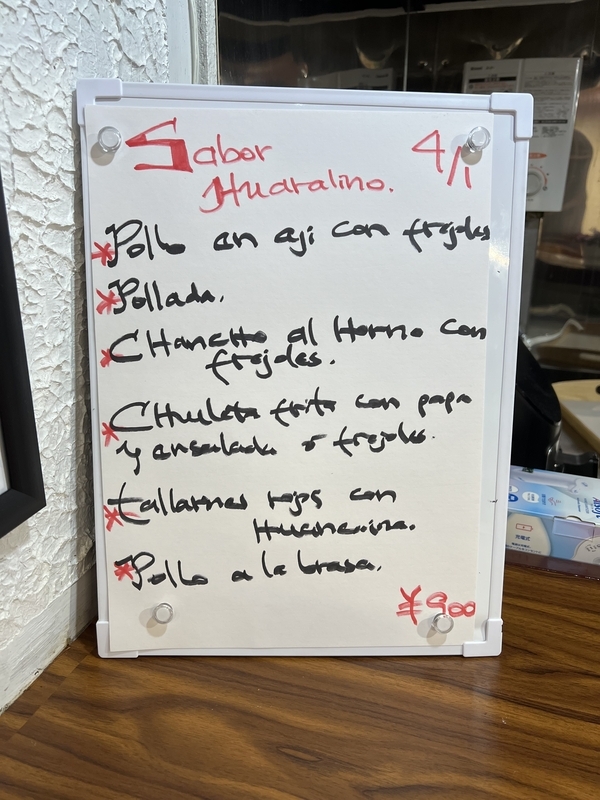 Sabor 4/1
Huaralino.
*Pollo en aji con frejoles
*Pollada.
*CHancho al Horno con
frejoles.
*CHuleta frita con papa
y ensalada o frejoles.
*tallarines rojos con
Huancaina.
*Pollo a la brasa.
¥900